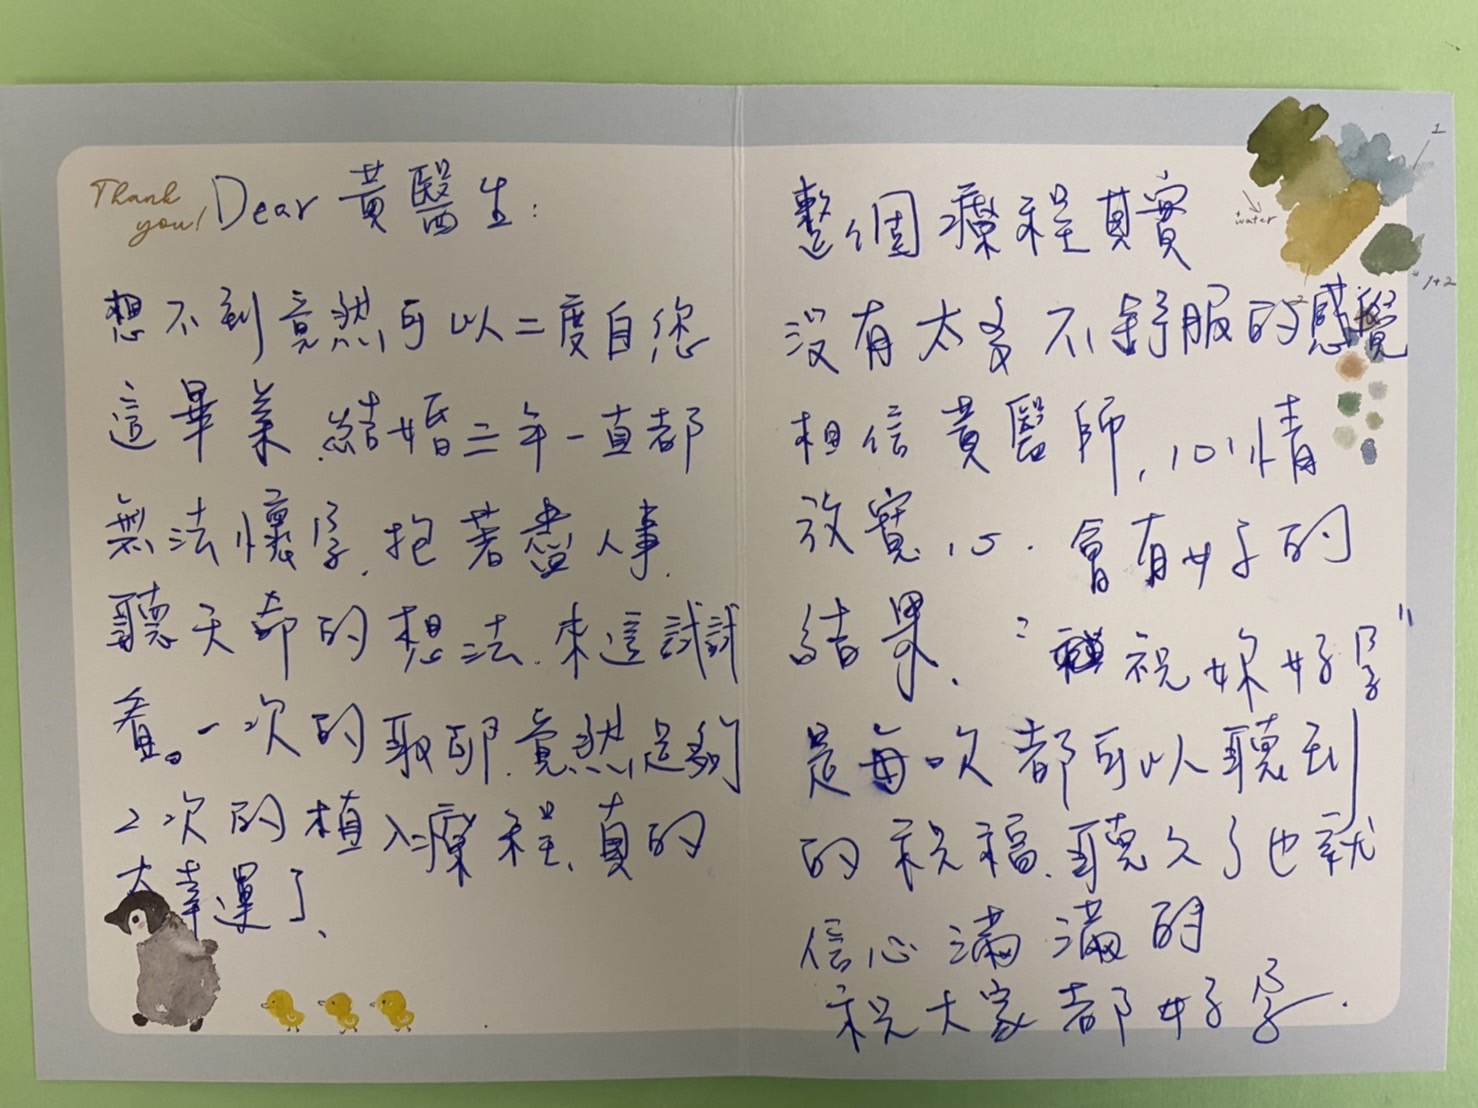 Thank you!
Dear 黃醫生:
想不到竟然可以二度自您
這畢業.結婚三年一直都
無法懷孕.抱著盡人事.
聽天命的想法.來這試試
看。一次的取卵.竟然足夠
2次的植入療程、真的
太幸運了、
整個療程其實
沒有太多不舒服的感覺
相信黃醫師,心情
放寬心.會有好的
結果.
"祝妳好孕"
是每次都可以聽到
的祝福.聽久了也就
信心滿滿的
祝大家都好孕.
1
+water
2
1+2